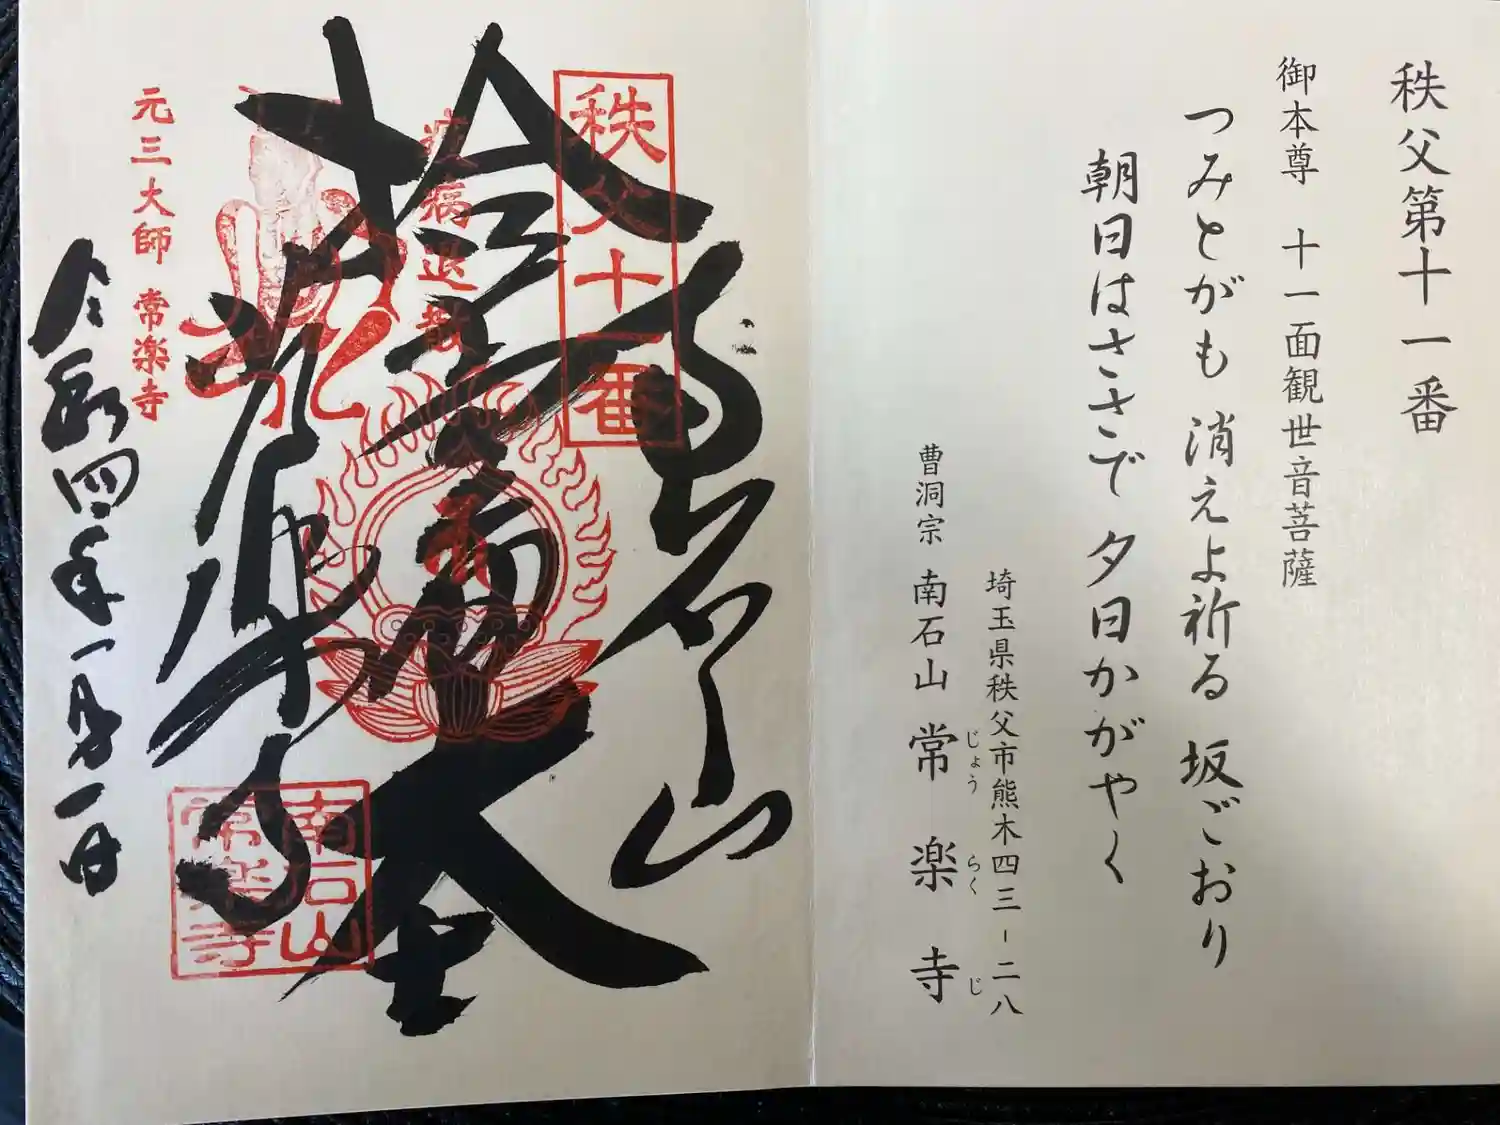 秩父第十一番
御本尊 十一面観世音菩薩
つみとがも 消えよ祈る 坂ごおり
朝日はささで 夕日かがやく
埼玉県秩父市熊木四三-二八
曹洞宗 南石山 常楽寺
じょう らく じ
南石山
秩父十一番
拾壹面大士
疫病退散
常楽寺
元三大師 常楽寺
南石山
常楽寺
令和四年一月一日